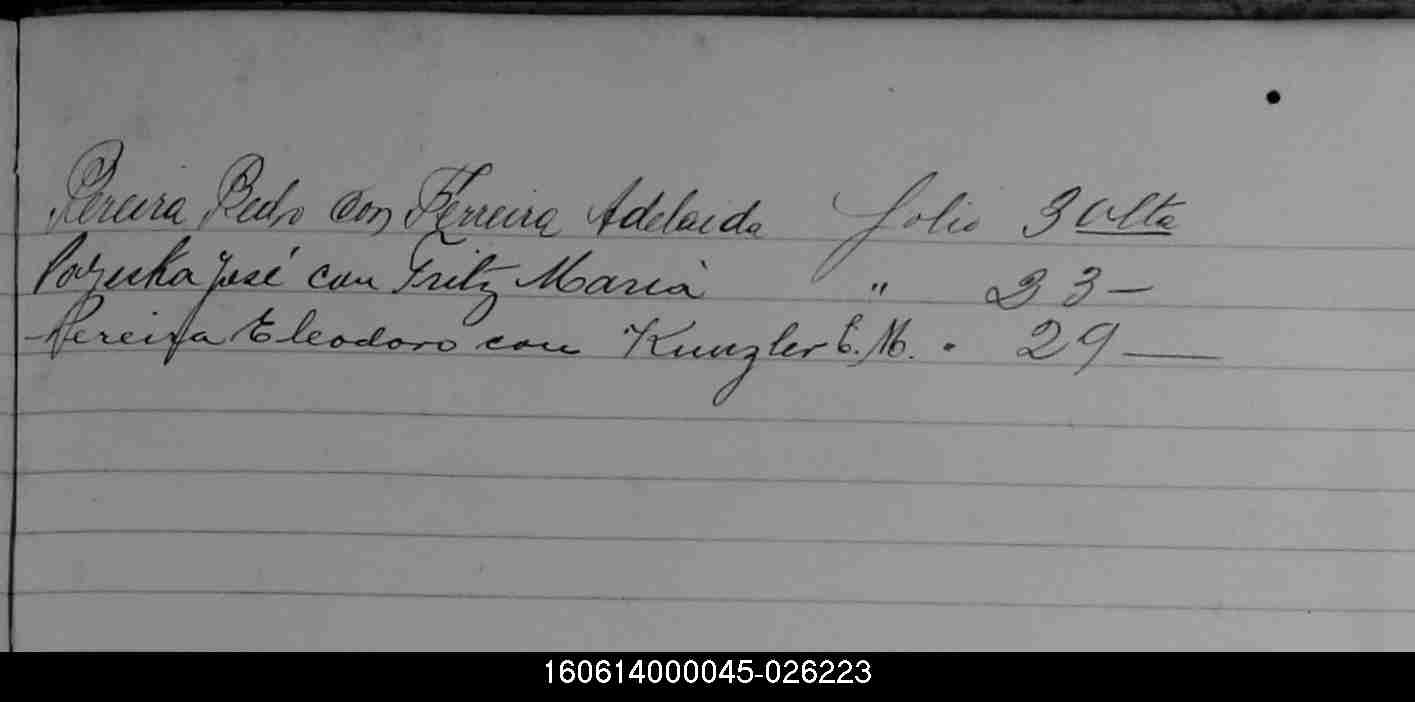 Pereira Pedro con Ferreira Adelaida folio 3 vlta
José con Fritz Maria " 23 —
Pereira Eleodoro con Kunzler E. M. " 29 —
160614000045-026223